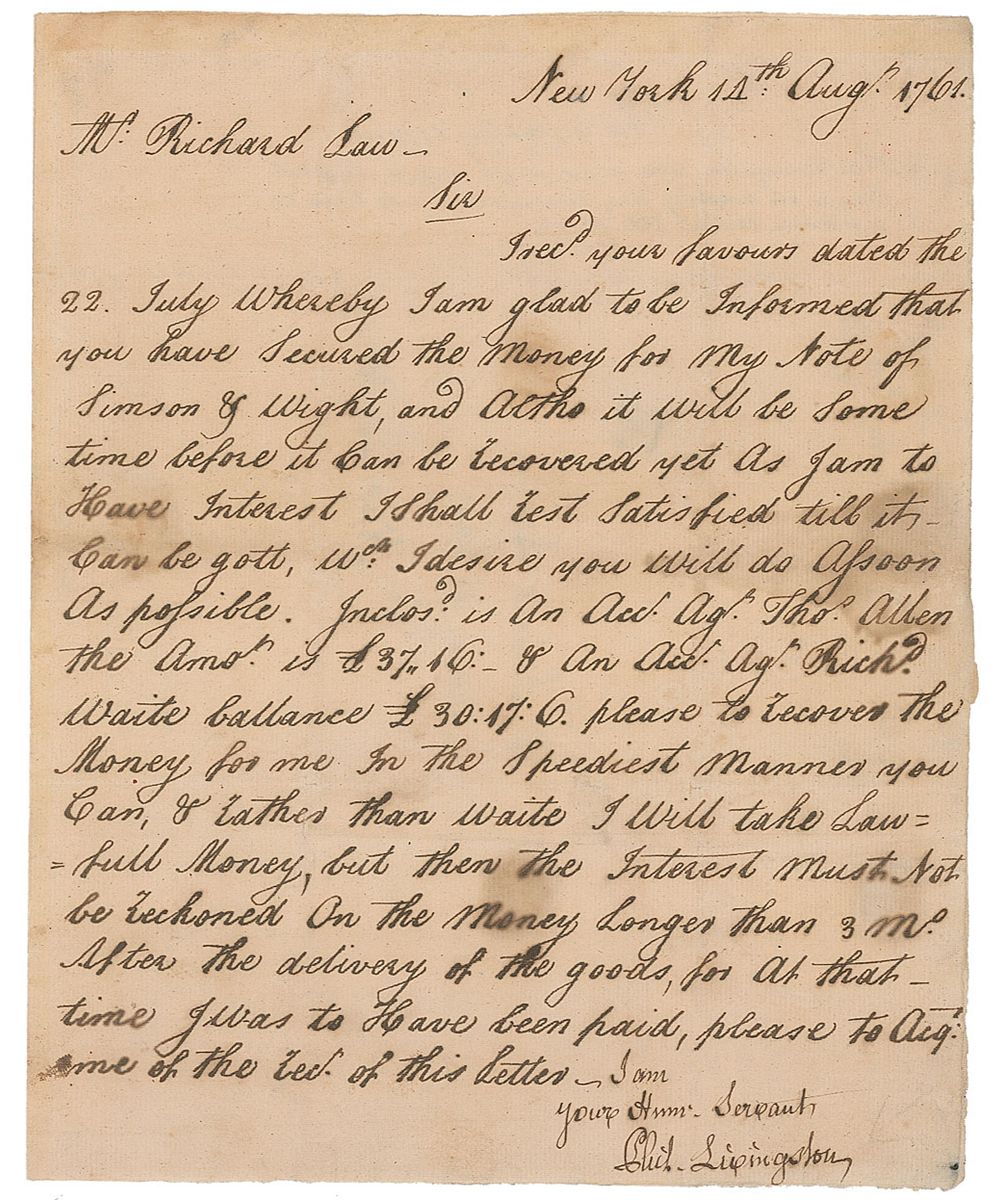 New York 14th. Augt. 1761.
Mr. Richard Law –
Sir
I recd. your favours dated the
22. July Whereby I am glad to be Informed that
you have Secured the Money for My Note of
Simson & Wight, and Altho it will be Some
time before it Can be recovered yet As I am to
Have Interest I Shall rest Satisfied till it –
Can be gott, wch. I desire you will do Assoon
As possible. Inclosd. is An Acct. Agt. Thos. Allen
the Amot. is £37,,16:– & An Acct. Agt. Richd.
Waite ballance £30:17:6. please to recover the
Money for me In the Speediest Manner you
Can, & rather than waite I Will take Law=
=full Money, but then the Interest Must Not
be reckoned On the Money Longer than 3 Mo.
After the delivery of the goods, for At that –
time I was to Have been paid, please to Acqt.
me of the rect. of this Letter – I am
your Hume. Servant,
Phil. Livingston,